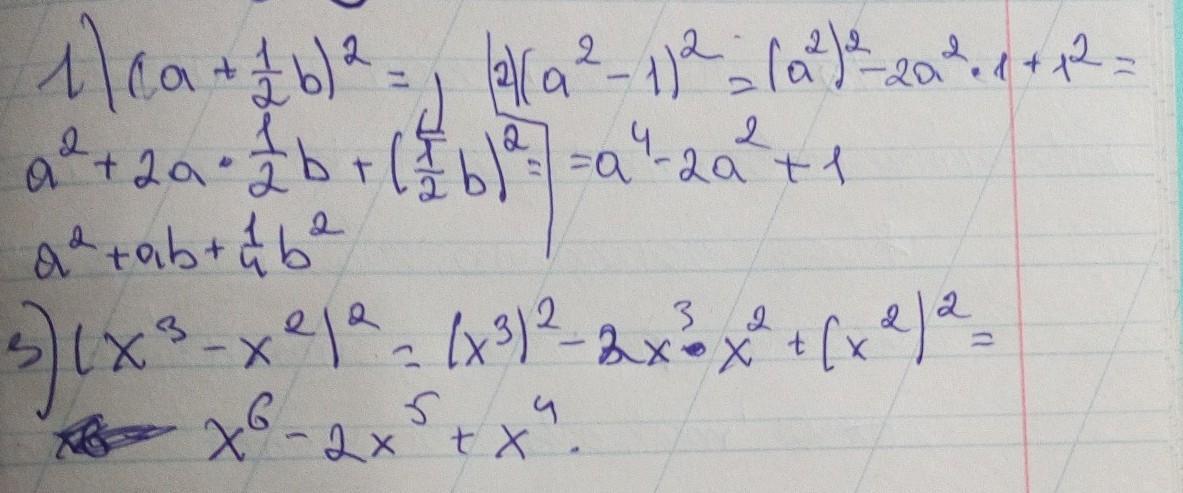 1) (a + 1/2 b)² =
a² + 2a · 1/2 b + (1/2 b)² =
a² + ab + 1/4 b²
2) (a² - 1)² = (a²)² - 2a² · 1 + 1² =
= a⁴ - 2a² + 1
3) (x³ - x²)² = (x³)² - 2x³ · x² + (x²)² =
x⁶ - 2x⁵ + x⁴.